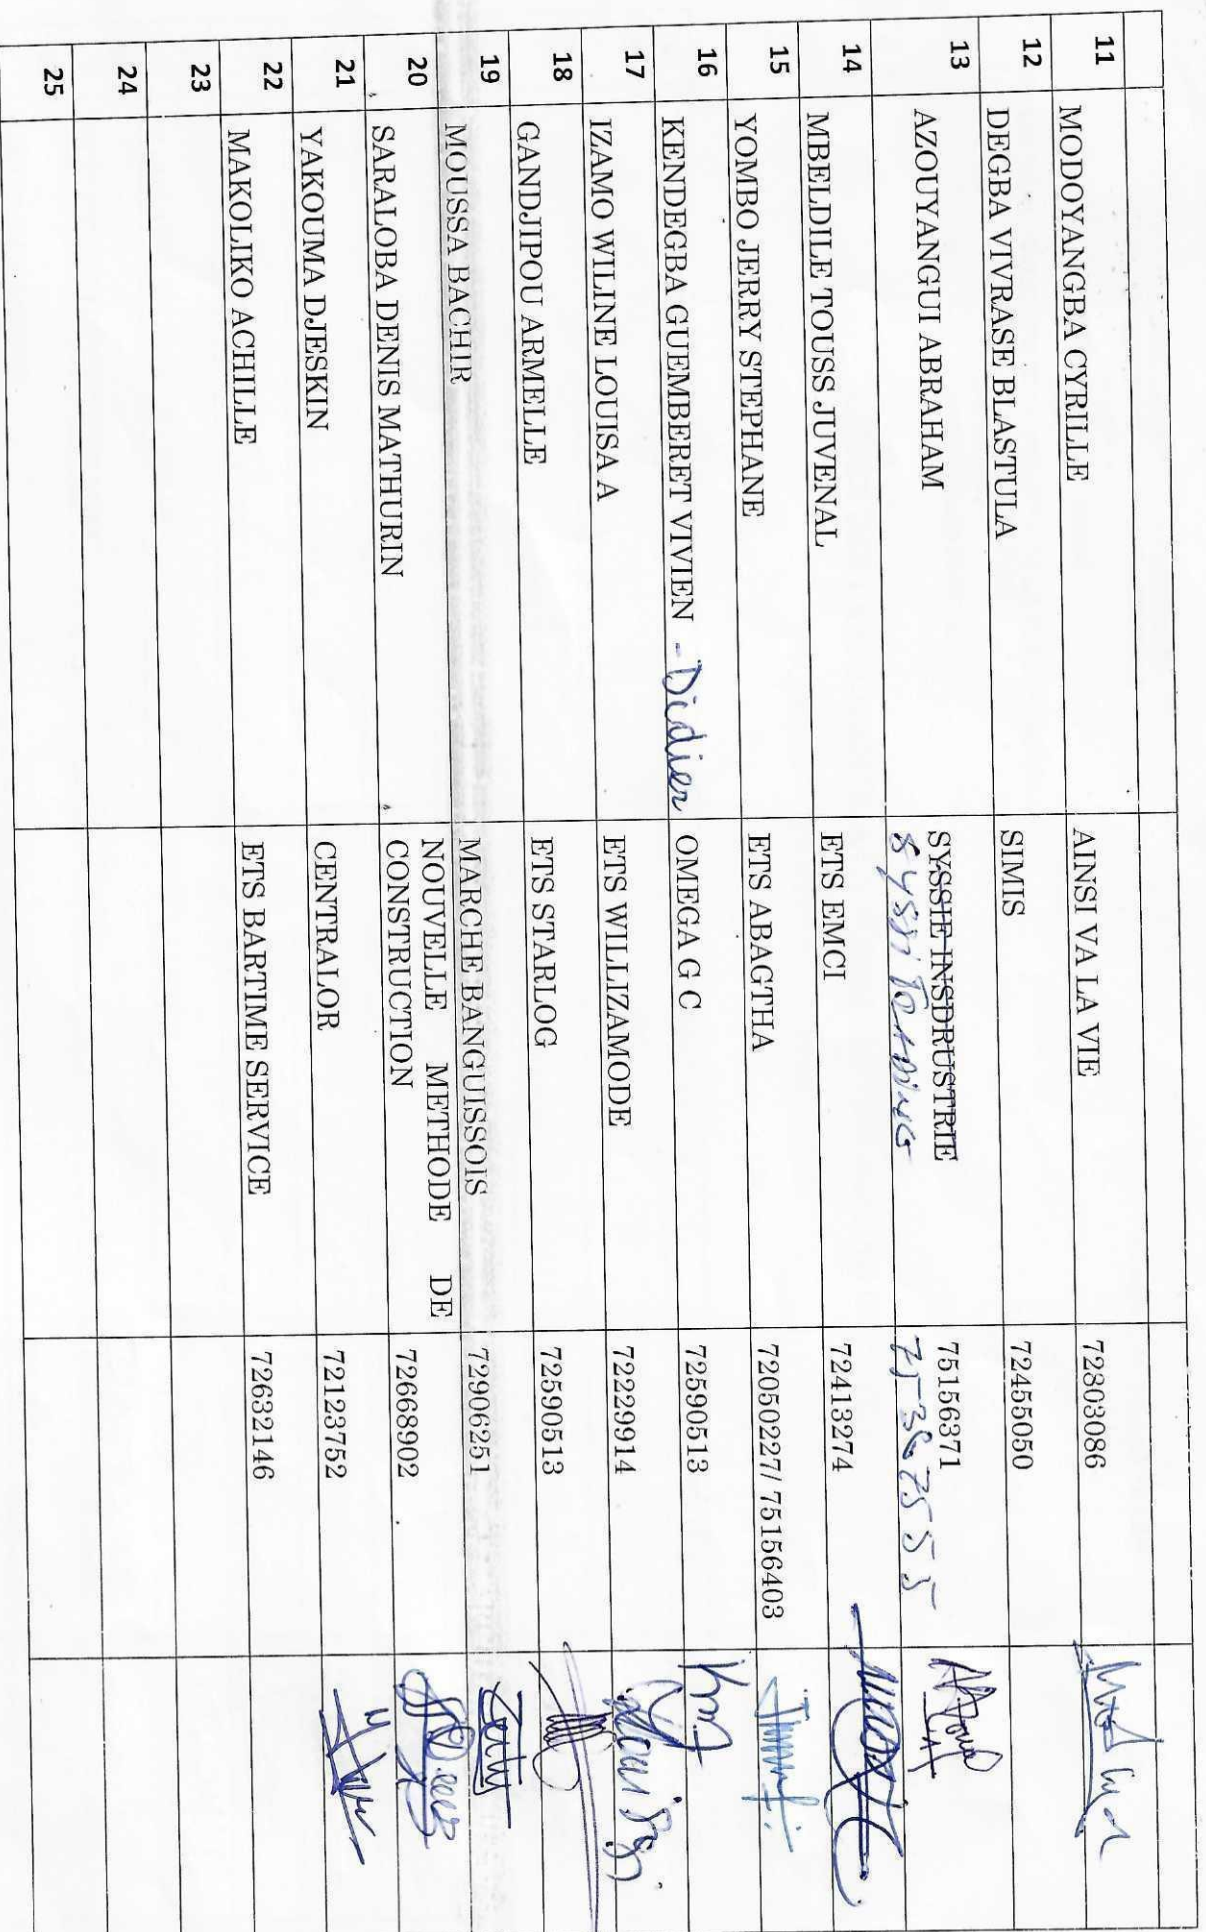 11 MODOYANGBA CYRILLE AINSI VA LA VIE 72803086
12 DEGBA VIVRASE BLASTULA SIMIS 72455050
13 AZOUYANGUI ABRAHAM SYSSIE INSDRUSTRIE 75156371
75387555
14 MBELDILE TOUSS JUVENAL ETS EMCI 72413274
15 YOMBO JERRY STEPHANE ETS ABAGTHA 72050227/ 75156403
16 KENDEGBA GUEMBERET VIVIEN - Didier OMEGA G C 72590513
17 IZAMO WILINE LOUISA A ETS WILLIZAMODE 72229914
18 GANDJIPOU ARMELLE ETS STARLOG 72590513
19 MOUSSA BACHIR MARCHE BANGUISSOIS 72906251
20 SARALOBA DENIS MATHURIN NOUVELLE METHODE DE 72668902
CONSTRUCTION
21 YAKOUMA DJESKIN CENTRALOR 72123752
22 MAKOLIKO ACHILLE ETS BARTIME SERVICE 72632146
23
24
25